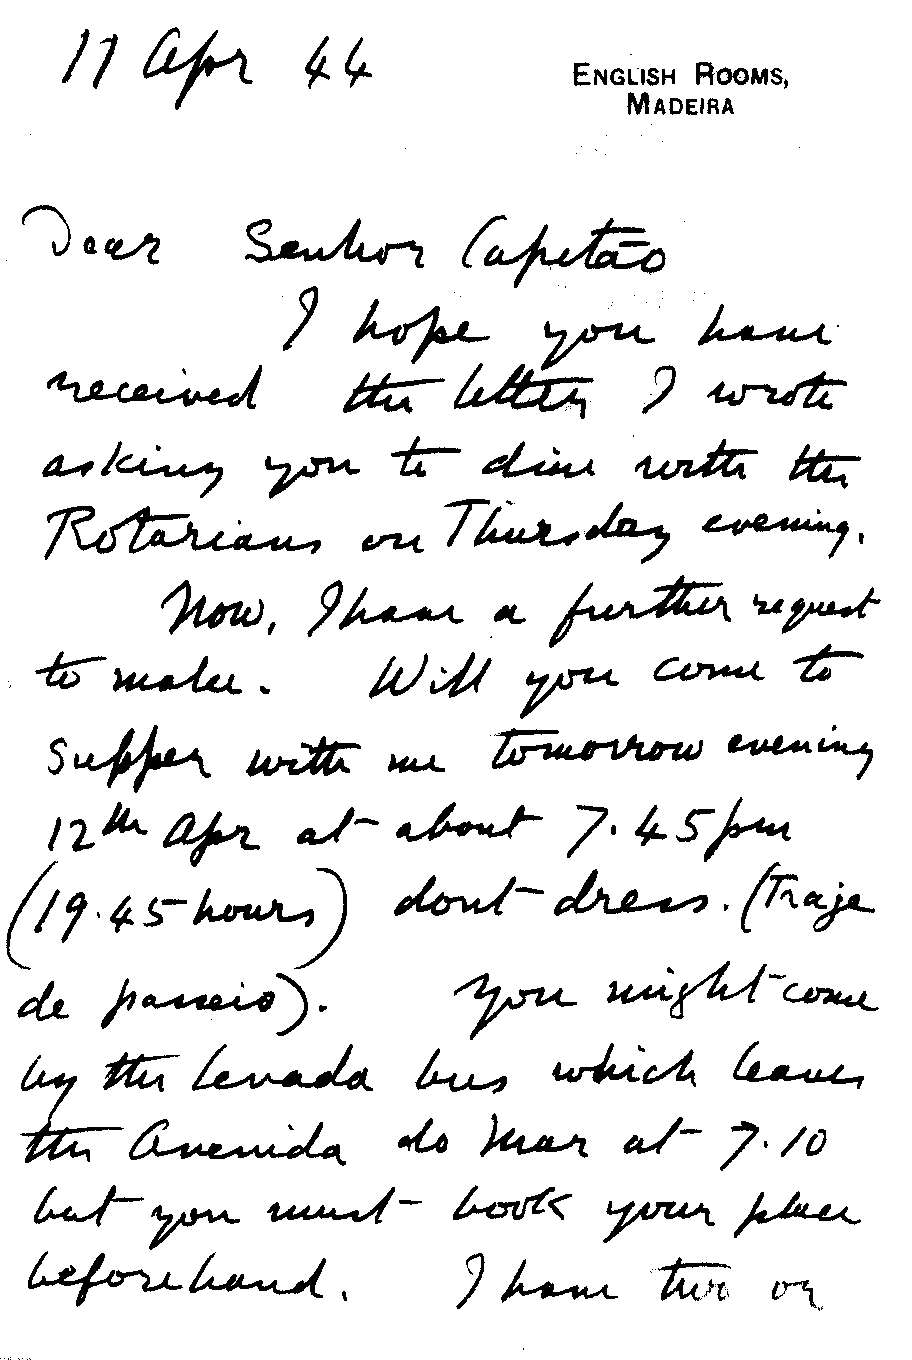 11 Apr 44
ENGLISH ROOMS,
MADEIRA
Dear Senhor Capitão
I hope you have
received the letter I wrote
asking you to dine with the
Rotarians on Thursday evening.
Now, I have a further request
to make. Will you come to
supper with me tomorrow evening
12th Apr at about 7.45pm
(19.45 hours) dont dress. (Traje
de passeio). You might come
by the Levada bus which leaves
the Avenida do Mar at 7.10
but you must book your place
beforehand. I have two or